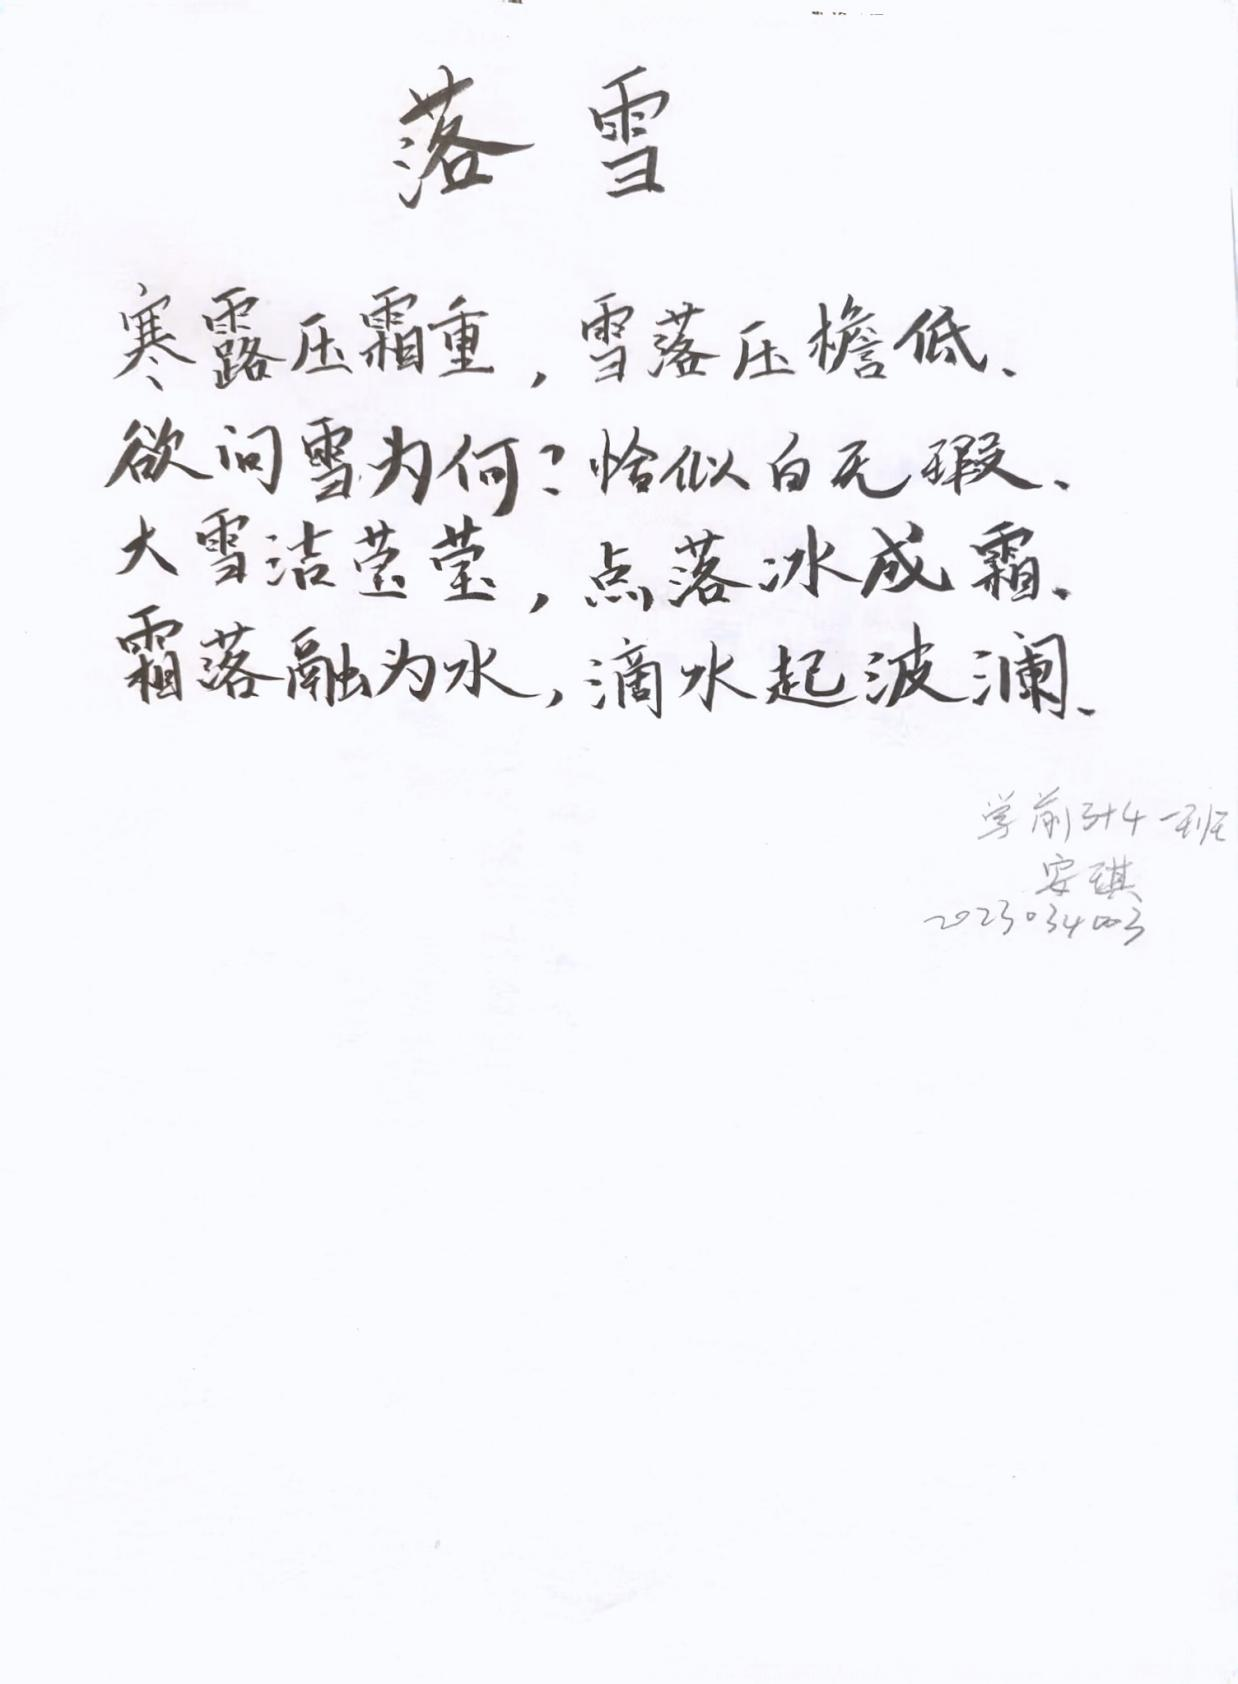 落雪
寒露压霜重，雪落压檐低、
欲问雪为何？恰似白无瑕、
大雪洁莹莹，点落冰成霜、
霜落融为水，滴水起波澜、
学前3+4一班
安琪
2023034003